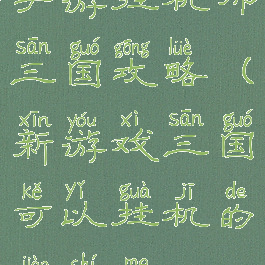 sān guó gōng lüè
三国攻略(
xīn yóu xì sān guó
新游戏三国
kě yǐ guà jī de
可以挂机的